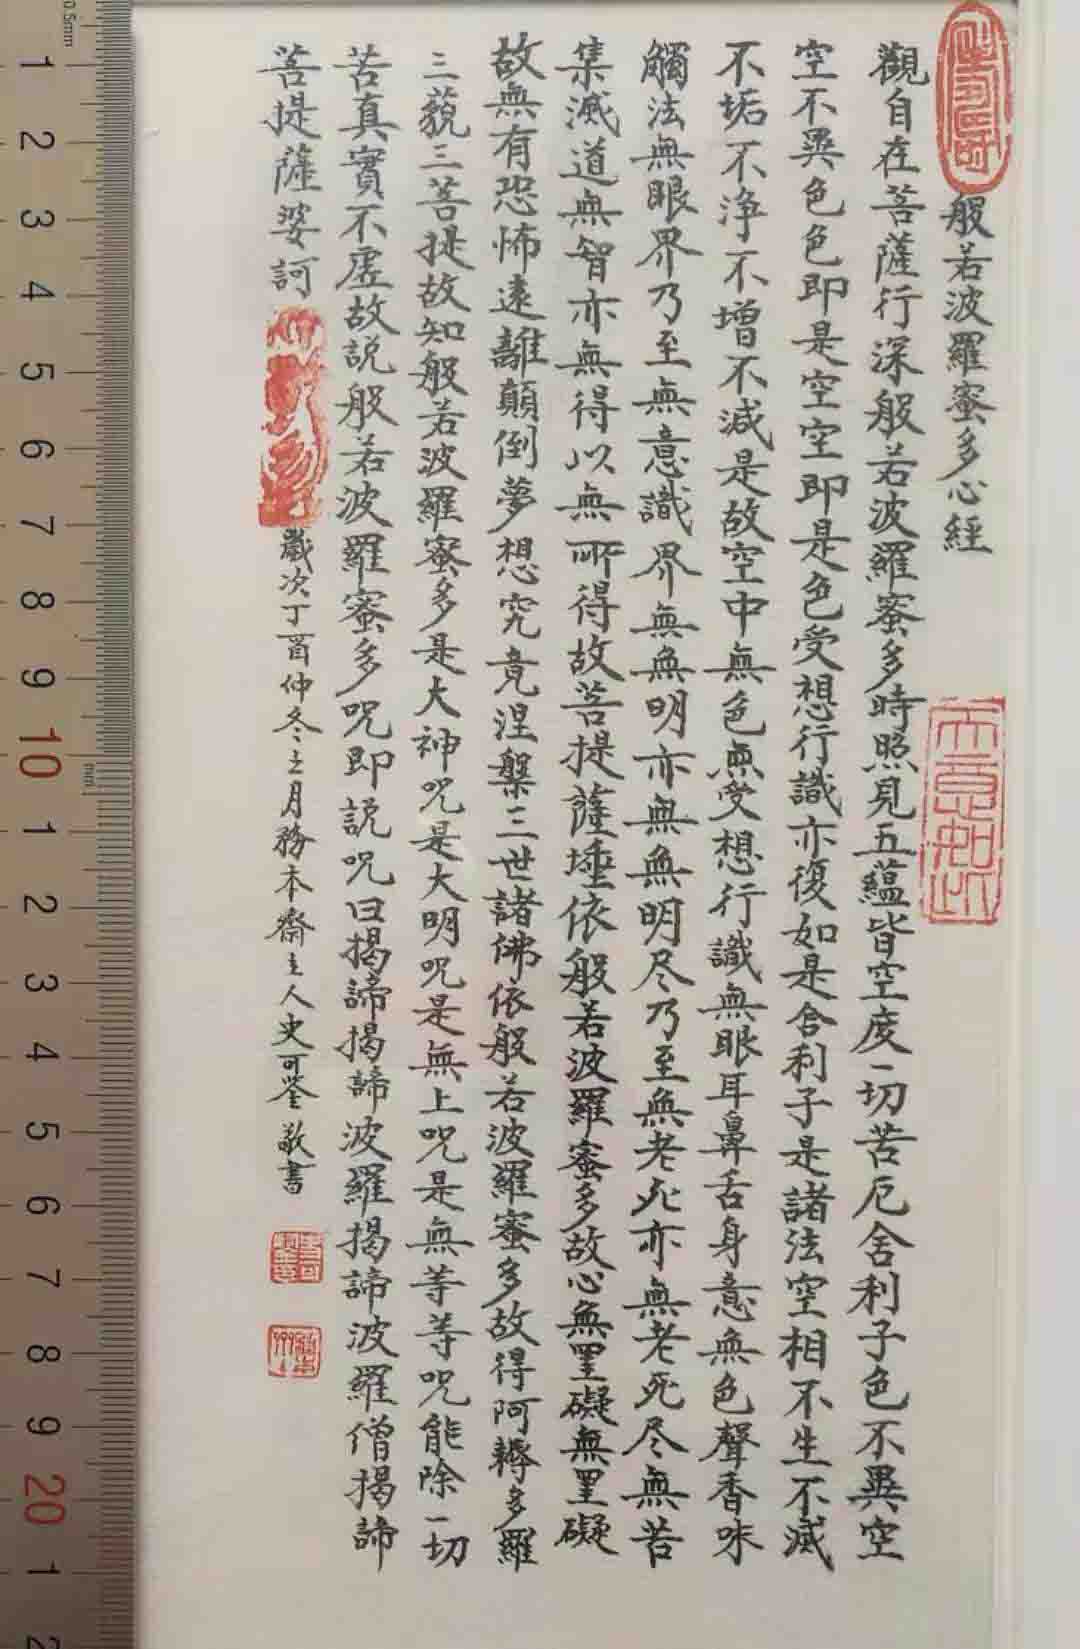 般若波羅蜜多心經
觀自在菩薩行深般若波羅蜜多時照見五蘊皆空度一切苦厄舍利子色不異空
空不異色色即是空空即是色受想行識亦復如是舍利子是諸法空相不生不滅
不垢不淨不增不減是故空中無色無受想行識無眼耳鼻舌身意無色聲香味
觸法無眼界乃至無意識界無無明亦無無明尽乃至無老死亦無老死尽無苦
集滅道無智亦無得以無所得故菩提薩埵依般若波羅蜜多故心無罣礙無罣礙
故無有恐怖遠離顛倒夢想究竟涅槃三世諸佛依般若波羅蜜多故得阿耨多羅
三藐三菩提故知般若波羅蜜多是大神咒是大明咒是無上咒是無等等咒能除一切
苦真實不虛故說般若波羅蜜多咒即說咒曰揭諦揭諦波羅揭諦波羅僧揭諦
菩提薩婆訶
歲次丁酉仲冬之月務本齋主人史可鉴敬書
0.5mm
1
2
3
4
5
6
7
8
9
10
mm
1
2
3
4
5
6
7
8
9
20
1
2
大意如此